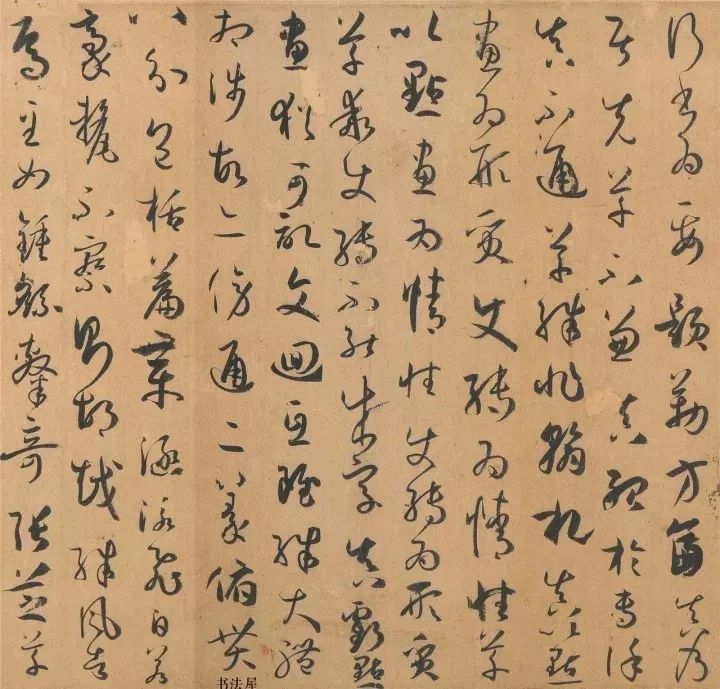 行書為要題勒方畐真乃
居先草不兼真殆於專謹
真不通草殊非翰札真以點
畫為形質使轉為情性草
以點畫為情性使轉為形質
草乖使轉不能成字真虧點
畫猶可記文迴互雖殊大體
相涉故亦傍通二篆俯貫
八分包括篇章涵泳飛白若
豪釐不察則胡越殊風者
焉至如鍾繇隸奇張芝草
书法屋